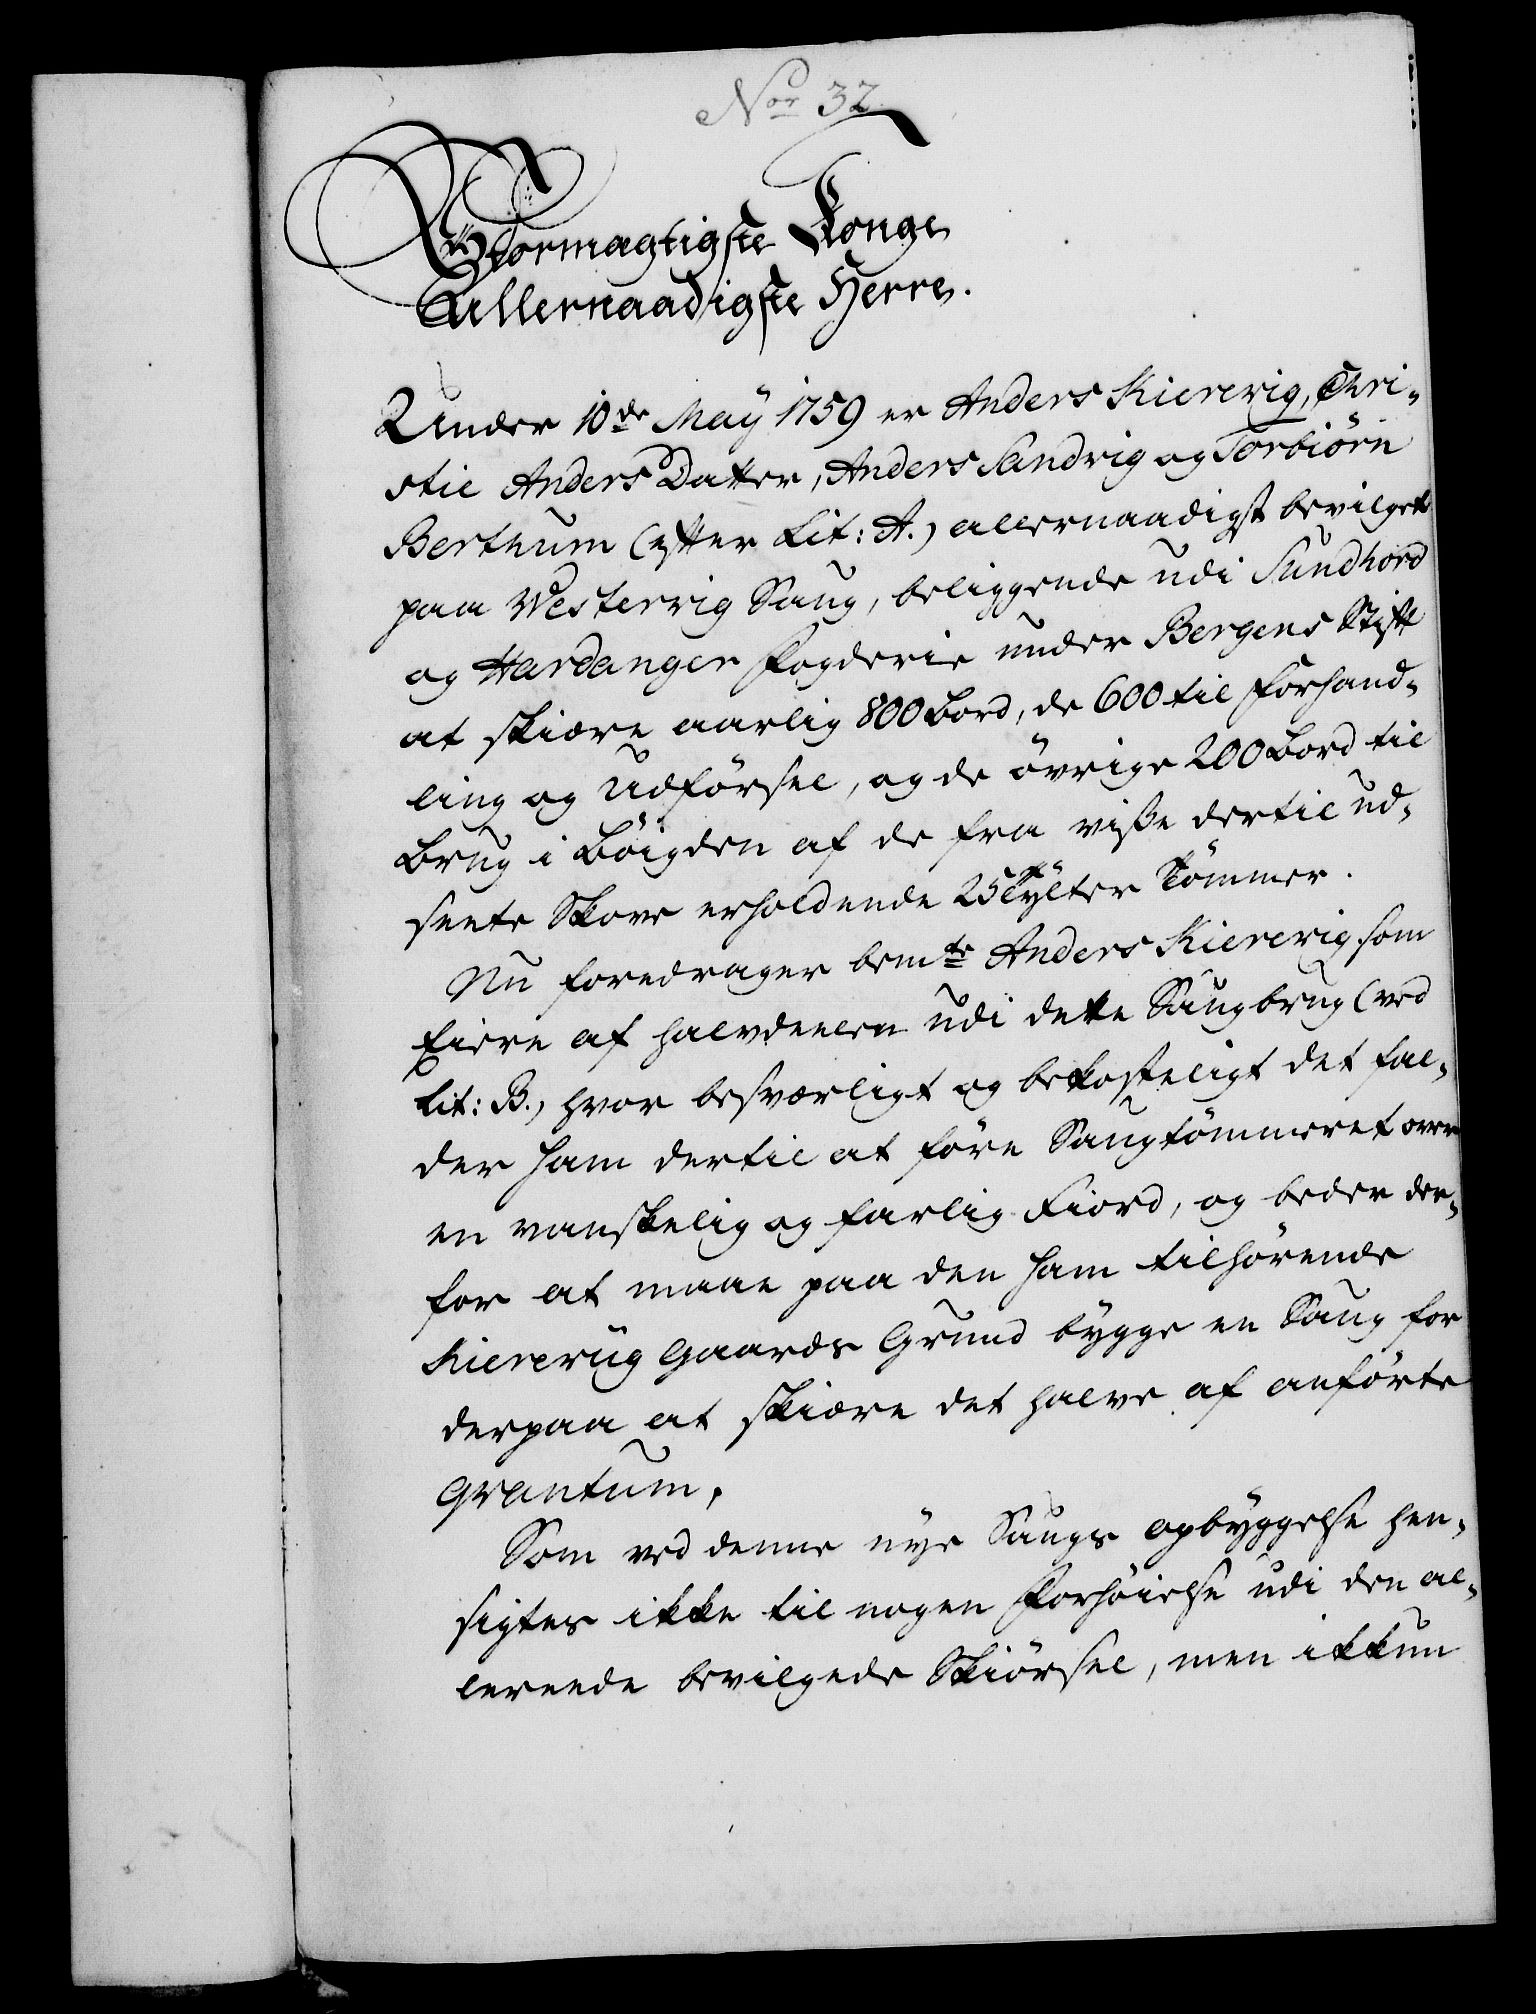 No 32
Stormægtigste Konge
Allernaadigste Herre.
Under 10de Maÿ 1759 er Anders Kierevig, Chri-
stie Anders Datter, Anders Sandvig og Torbiørn
Berthum (efter Lit: A.) allernaadigst bevilget
paa Westervig Saug, beliggende udi Sundhord
og Hardanger Fogderie under Bergens Stift
at skiære aarlig 800 Bord, de 600 til Forhand-
ling og Udførsel, og de øvrige 200 Bord til
Brug i Bøigden af de fra visse dertil ud-
seete Skove erholdende 25 tylter Tømmer.
Nu foredrager bemte Anders Kierevig som
Eiere af halvdeelen udi dette Saugbrug (ved
Lit: B.) hvor besværligt og bekosteligt det fal-
der ham dertil at føre Saugtømmeret over
en vanskelig og farlig Fiord, og beder der-
for at maae paa den ham tilhørende
Kierevig Gaards Grund bygge en Saug for
derpaa at skiære det halve af anførte
Qvantum.
Som ved denne nye Saugs opbyggelse hen-
sigtes ikke til nogen Forhøielse udi den al-
lereede bevilgede Skiørsel, men ikkun